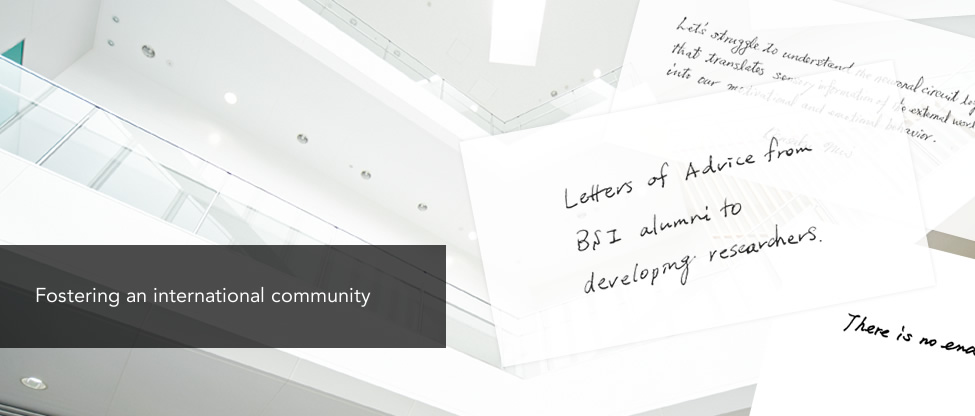 Let's struggle to understand the neuronal circuit
that translates sensory information of the external
into our motivational and emotional behavior.
Letters of Advice from
BSI alumni to
developing researchers.
Fostering an international community
There is no